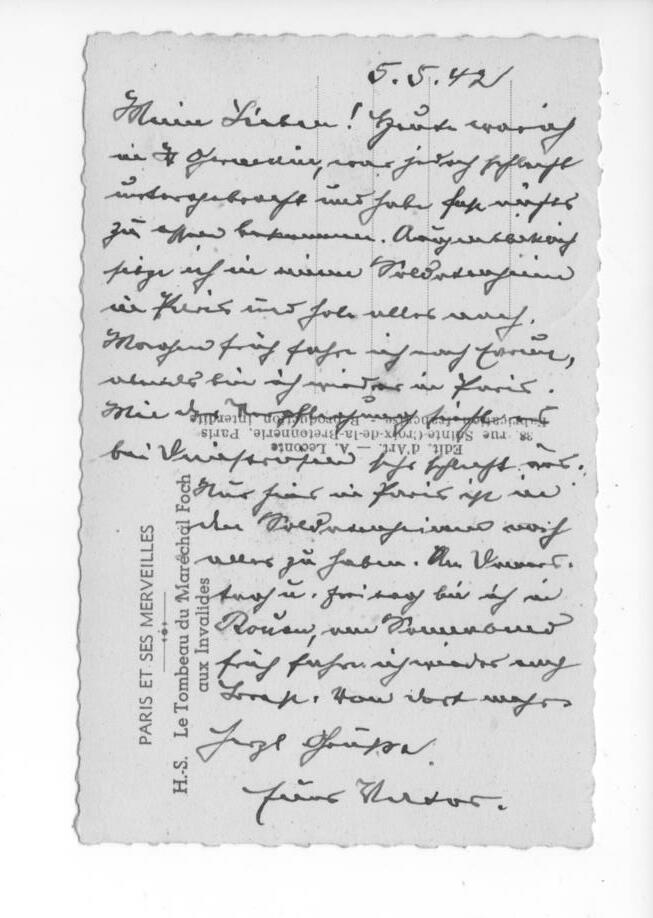 5.5.42
Meine Lieben! Heute war ich
in St Germain, war jedoch schlecht
untergebracht und habe fast nichts
zu essen bekommen. Augenblicklich
sitze ich in einem Soldatenheim
in Paris und hole alles nach.
Morgen früh fahre ich nach Evreux,
abends bin ich wieder in Paris.
Mit der Verpflegung sieht es
bei sehr schlecht aus.
Nur hier in Paris ist in
den Soldatenheimen noch
alles zu haben. Am Donners-
tag u. Freitag bin ich in
Rouen, am Sonnabend
früh fahre ich wieder nach
Von dort mehr.
Herzl Grüße
Euer
PARIS ET SES MERVEILLES
H.-S. Le Tombeau du Maréchal Foch
aux Invalides
Edit. d'Art. — A. Leconte
38, rue Sainte-Croix-de-la-Bretonnerie, Paris
Fabrication française - Reproduction interdite